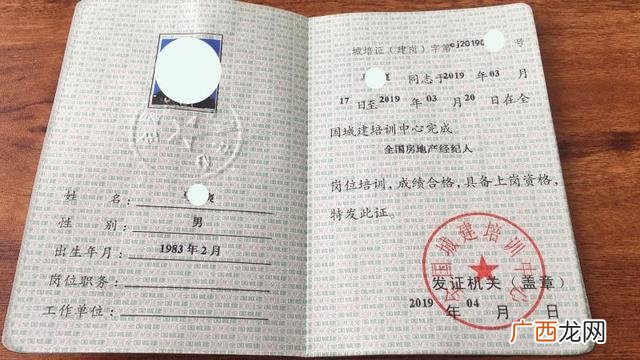 姓 名:
性 别: 男
出生年月: 1983年2月
岗位职务:
工作单位:
城培证(建岗)字第cj20190 号
同志于2019 年 03 月
17 日至 2019 年 03 月 20 日在全
国城建培训中心完成
全国房地产经纪人
岗位培训,成绩合格,具备上岗资格,
特发此证。
国城建培训中心
发证机关(盖章)
2019 年 04 月 日
广西龙网